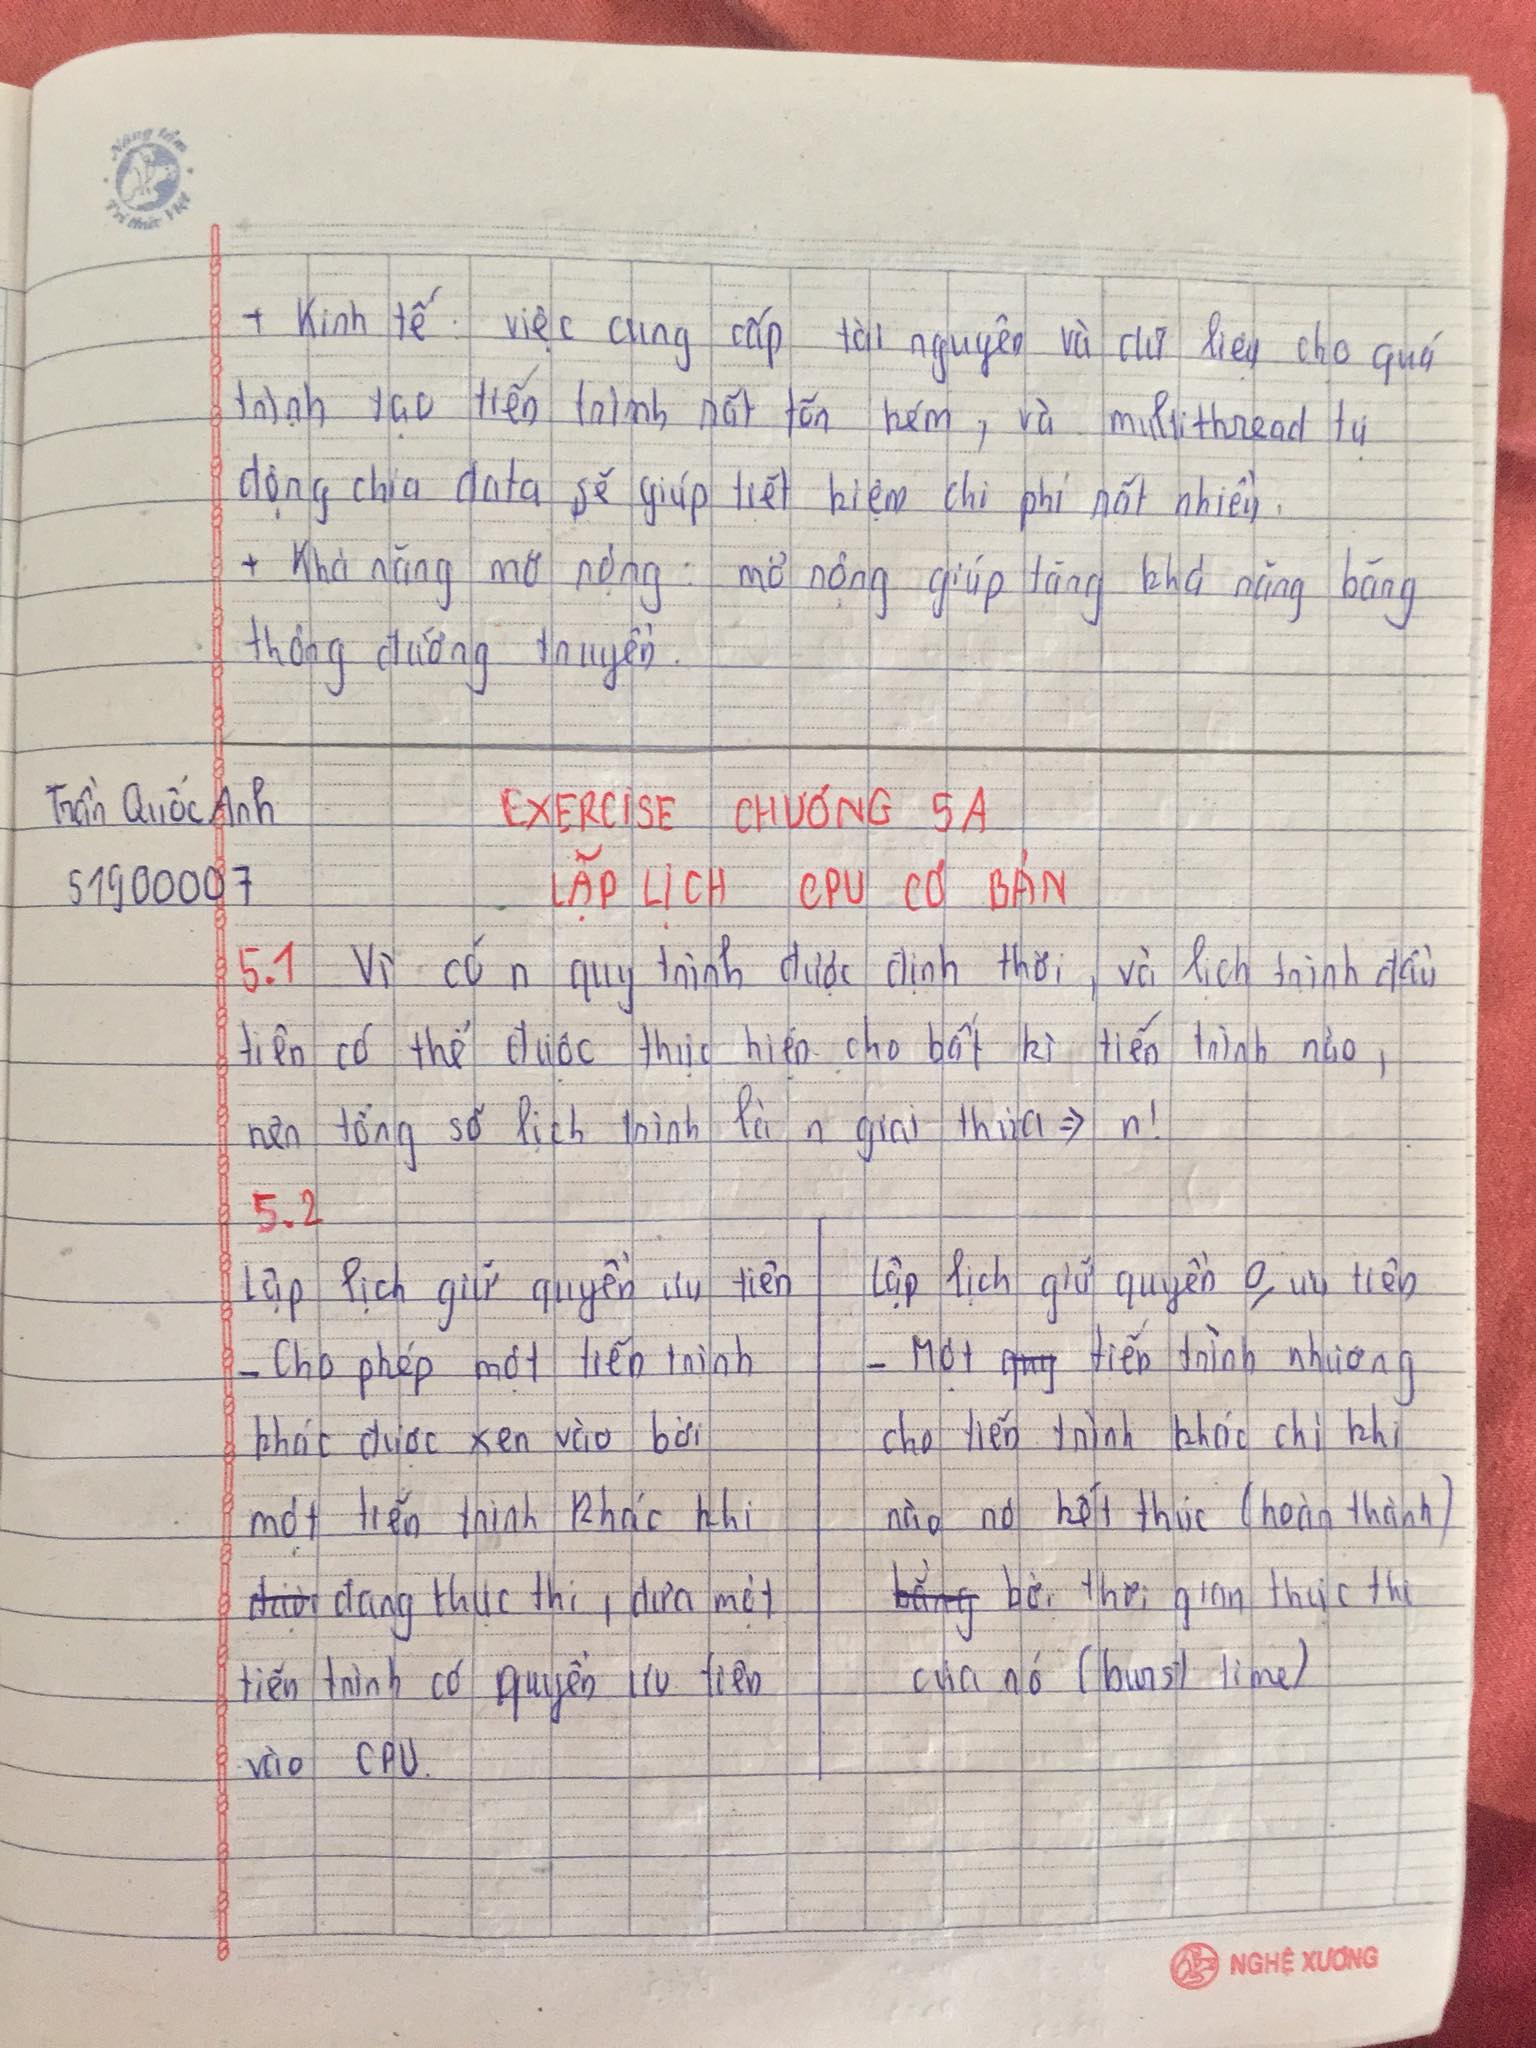 Nâng tầm
Tri thức Việt
+ Kinh tế: việc cung cấp tài nguyên và dữ liệu cho quá
trình tạo tiến trình rất tốn kém, và multithread tự
động chia data sẽ giúp tiết kiệm chi phí rất nhiều.
+ Khả năng mở rộng: mở rộng giúp tăng khả năng băng
thông đường truyền.
Trần Quốc Anh
51900007
EXERCISE CHƯƠNG 5A
LẬP LỊCH CPU CƠ BẢN
5.1 Vì có n quy trình được định thời, và lịch trình đầu
tiên có thể được thực hiện cho bất kì tiến trình nào,
nên tổng số lịch trình là n giai thừa => n!
5.2
Lập lịch giữ quyền ưu tiên
- Cho phép một tiến trình
khác được xen vào bởi
một tiến trình khác khi
đang thực thi, đưa một
tiến trình có quyền ưu tiên
vào CPU.
Lập lịch giữ quyền 0 ưu tiên
- Một quy tiến trình nhường
cho tiến trình khác chỉ khi
nào nó kết thúc (hoàn thành)
bằng bởi thời gian thực thi
của nó (burst time)
NGHỆ XƯƠNG